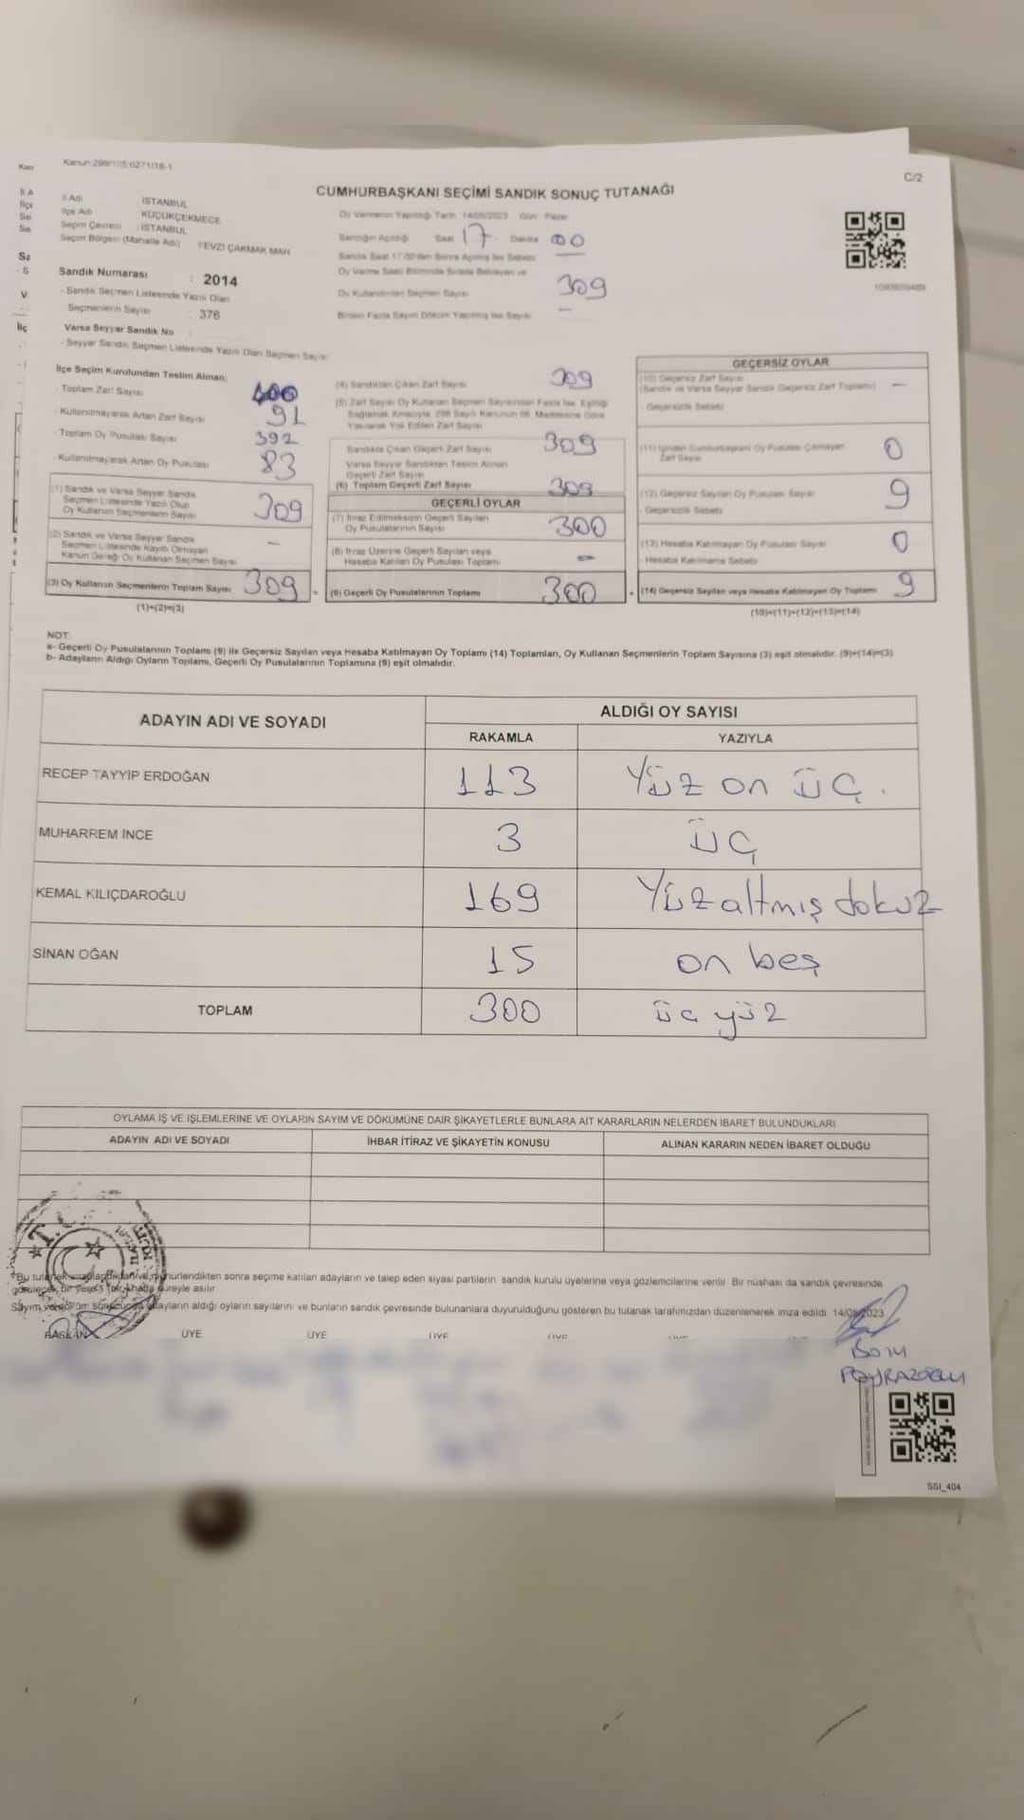 C/2
CUMHURBAŞKANI SEÇİMİ SANDIK SONUÇ TUTANAĞI
İl Adı İSTANBUL
İlçe Adı KÜÇÜKÇEKMECE
Seçim Çevresi : İSTANBUL
Seçim Bölgesi (Mahalle Adı) FEVZİ ÇAKMAK MAH
Sandık Numarası : 2014
- Sandık Seçmen Listesinde Yazılı Olan
Seçmenlerin Sayısı : 376
Varsa Seyyar Sandık No
- Seyyar Sandık Seçmen Listesinde Yazılı Olan Seçmen Sayısı
Oy Vermenin Yapıldığı Tarih 14/05/2023 Gün Pazar
Sandığın Açıldığı Saat 17 Dakika 00
Oy Kullandırılan Seçmen Sayısı 309
İlçe Seçim Kurulundan Teslim Alınan;
- Toplam Zarf Sayısı 400
- Kullanılmayarak Artan Zarf Sayısı 91
- Toplam Oy Pusulası Sayısı 392
- Kullanılmayarak Artan Oy Pusulası 83
(1) Sandık ve Varsa Seyyar Sandık
Seçmen Listesinde Yazılı Olup
Oy Kullanan Seçmenlerin Sayısı 309
(2) Sandık ve Varsa Seyyar Sandık
Seçmen Listesinde Kayıtlı Olmayan
Kanun Gereği Oy Kullanan Seçmen Sayısı -
(3) Oy Kullanan Seçmenlerin Toplam Sayısı 309
(1)+(2)=(3)
(4) Sandıktan Çıkan Zarf Sayısı 309
Sandıkta Çıkan Geçerli Zarf Sayısı 309
Varsa Seyyar Sandıktan Teslim Alınan
Geçerli Zarf Sayısı
(6) Toplam Geçerli Zarf Sayısı 309
GEÇERLİ OYLAR
(7) İtiraz Edilmeksizin Geçerli Sayılan
Oy Pusulalarının Sayısı 300
(8) İtiraz Üzerine Geçerli Sayılan veya
Hesaba Katılan Oy Pusulası Toplamı -
(9) Geçerli Oy Pusulalarının Toplamı 300
GEÇERSİZ OYLAR
(10) Geçersiz Zarf Sayısı
(Sandık ve Varsa Seyyar Sandık Geçersiz Zarf Toplamı) -
Geçersizlik Sebebi
(11) İçinden Cumhurbaşkanı Oy Pusulası Çıkmayan
Zarf Sayısı 0
(12) Geçersiz Sayılan Oy Pusulası Sayısı 9
Geçersizlik Sebebi
(13) Hesaba Katılmayan Oy Pusulası Sayısı 0
Hesaba Katılmama Sebebi
(14) Geçersiz Sayılan veya Hesaba Katılmayan Oy Toplamı 9
(10)+(11)+(12)+(13)=(14)
NOT:
a- Geçerli Oy Pusulalarının Toplamı (9) ile Geçersiz Sayılan veya Hesaba Katılmayan Oy Toplamı (14) Toplamları, Oy Kullanan Seçmenlerin Toplam Sayısına (3) eşit olmalıdır. (9)+(14)=(3)
b- Adayların Aldığı Oyların Toplamı, Geçerli Oy Pusulalarının Toplamına (9) eşit olmalıdır.
ADAYIN ADI VE SOYADI ALDIĞI OY SAYISI
RAKAMLA YAZIYLA
RECEP TAYYİP ERDOĞAN 113 Yüz on üç.
MUHARREM İNCE 3 üç
KEMAL KILIÇDAROĞLU 169 Yüzaltmış dokuz
SİNAN OĞAN 15 on beş
TOPLAM 300 üç yüz
OYLAMA İŞ VE İŞLEMLERİNE VE OYLARIN SAYIM VE DÖKÜMÜNE DAİR ŞİKAYETLERLE BUNLARA AİT KARARLARIN NELERDEN İBARET BULUNDUKLARI
ADAYIN ADI VE SOYADI İHBAR İTİRAZ VE ŞİKAYETİN KONUSU ALINAN KARARIN NEDEN İBARET OLDUĞU
T.C.
mühürlendikten sonra seçime katılan adayların ve talep eden siyasi partilerin sandık kurulu üyelerine veya gözlemcilerine verilir. Bir nüshası da sandık çevresinde
bir hafta süreyle asılır.
adayların aldığı oyların sayılarını ve bunların sandık çevresinde bulunanlara duyurulduğunu gösteren bu tutanak tarafımızdan düzenlenerek imza edildi. 14/05/2023
BAŞKAN ÜYE ÜYE ÜYE ÜYE
POYRAZOĞLU
SSI_404